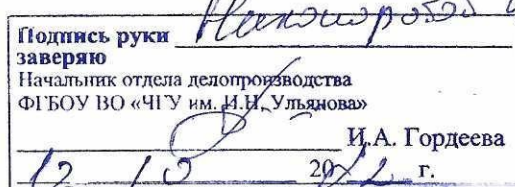 Подпись руки
заверяю
Начальник отдела делопроизводства
ФГБОУ ВО «ЧГУ им. И.Н. Ульянова»
И.А. Гордеева
12 10 2022 г.